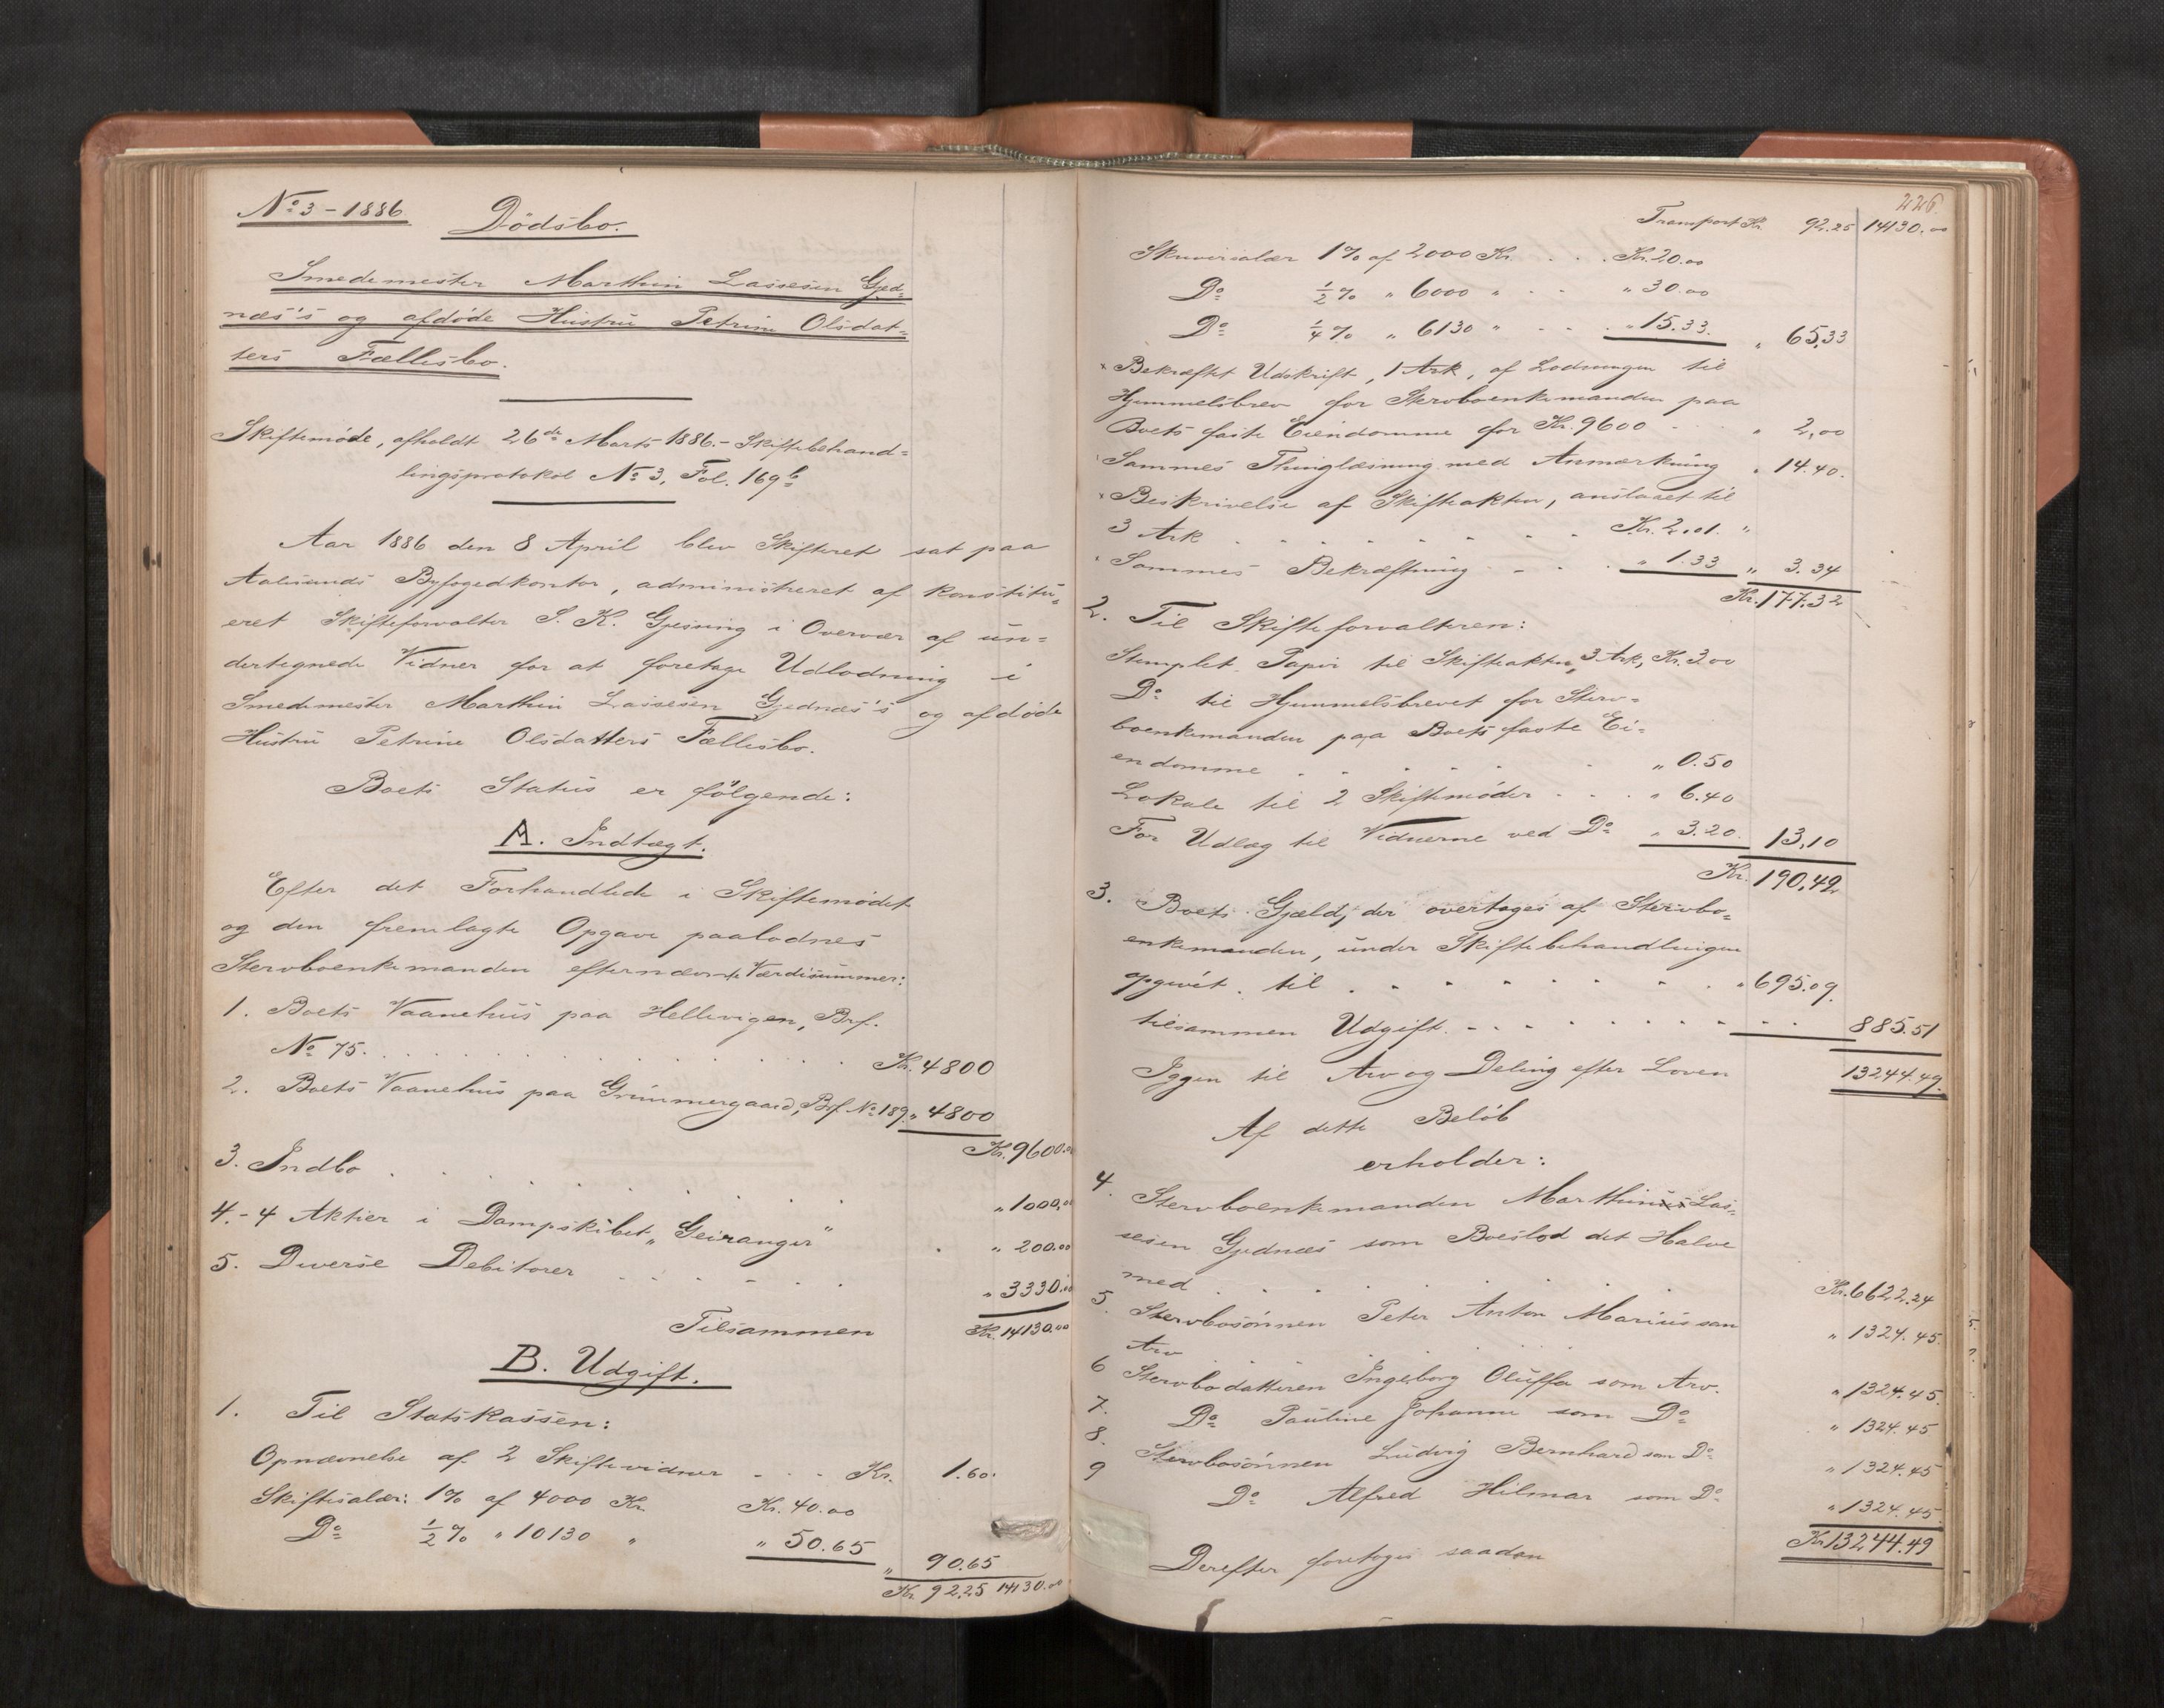 No 3 - 1886.
Dödsbo.
Smedemester Marthin Lassesen Gjed-
næs's og afdöde Hustru Petrine Olsdat-
ters Fællesbo.
Skiftemöde, afholdt 26de Marts 1886. - Skiftebehand-
lingsprotokol No 3, Fol. 169b
Aar 1886 den 8 April blev Skifteret sat paa
Aalesunds Byfogedkontor, administreret af konstitu-
eret Skifteforvalter S. K. Gjessing i Overvær af un-
dertegnede Vidner for at foretage Udlodning i
Smedemester Marthin Lassesen Gjednæs's og afdöde
Hustru Petrine Olsdatters Fællesbo.
Boets Status er fölgende:
A. Indtægt.
Efter det Forhandlede i Skiftemödet
og den fremlagte Opgave paalodnes
Stervboenkemanden efternævnte Værdisummer:
1. Boets Vaanehus paa Hellevigen, Brf.
No 75. . . . Kr. 4800
2. Boets Vaanehus paa Grimmergaard, Brf. No 189 „ 4800
Kr. 9600.00
3. Indbo . . . „ 1000.00
4. - 4 Aktier i Dampskibet „Geiranger" . „ 200.00
5. Diverse Debitorer . . . „ 3330.00
Tilsammen Kr. 14130.00
B. Udgift.
1. Til Statskassen:
Opnævnelse af 2 Skiftevidner - - - Kr. 1.60.
Skiftesalær: 1% af 4000 Kr. Kr. 40.00
Do ½% „ 10130 „ „ 50.65 „ 90.65
Kr. 92.25 14130.00
226.
Transport Kr. 92.25 14130.00
Skriversalær 1% af 2000 Kr. . . . Kr. 20.00
Do ½% „ 6000 „ . . „ 30.00
Do ¼% „ 6130 „ . . . „ 15.33. „ 65,33
x Bekræftet Udskrift, 1 Ark, af Lodningen til
Hjemmelsbrev for Stervboenkemanden paa
Boets faste Eiendomme for Kr. 9600 - - - „ 2,00
Sammes Thinglæsning med Anmærkning „ 14.40.
x Beskrivelse af Skifteakten, anslaaet til
3 Ark . . . Kr. 2.01. „
Sammes Bekræftning - - . „ 1.33 „ 3.34
Kr. 177.32
2. Til Skifteforvalteren:
Stemplet Papir til Skifteakten, 3 Ark, Kr. 3.00
Do til Hjemmelsbrevet for Sterv-
boenkemanden paa Boets faste Ei-
endomme . . . „ 0.50
Lokale til 2 Skiftemöder . . . „ 6.40
For Udlæg til Vidnerne ved Do „ 3.20. 13,10
Kr. 190,42
3. Boets Gjæld, der overtages af Stervbo-
enkemanden, under Skiftebehandlingen
opgivet til . . . „ 695.09.
tilsammen Udgift . - - . . . 885.51
Igjen til Arv og Deling efter Loven 13244.49.
Af dette Belöb
erholder:
4. Stervboenkemanden Marthin Las-
sesen Gjednæs som Boeslod det Halve
med . . . Kr. 6622.24
5. Stervbosönnen Peter Anton Marius som
Arv . . . „ 1324.45.
6 Stervbodatteren Ingeborg Oluffa som Arv. „ 1324.45.
7. Do Pauline Johanne som Do „ 1324.45
8. Stervbosönnen Ludvig Bernhard som Do „ 1324.45
9 Do Alfred Hilmar som Do „ 1324.45.
Kr 13244.49
Derefter foretoges saadan